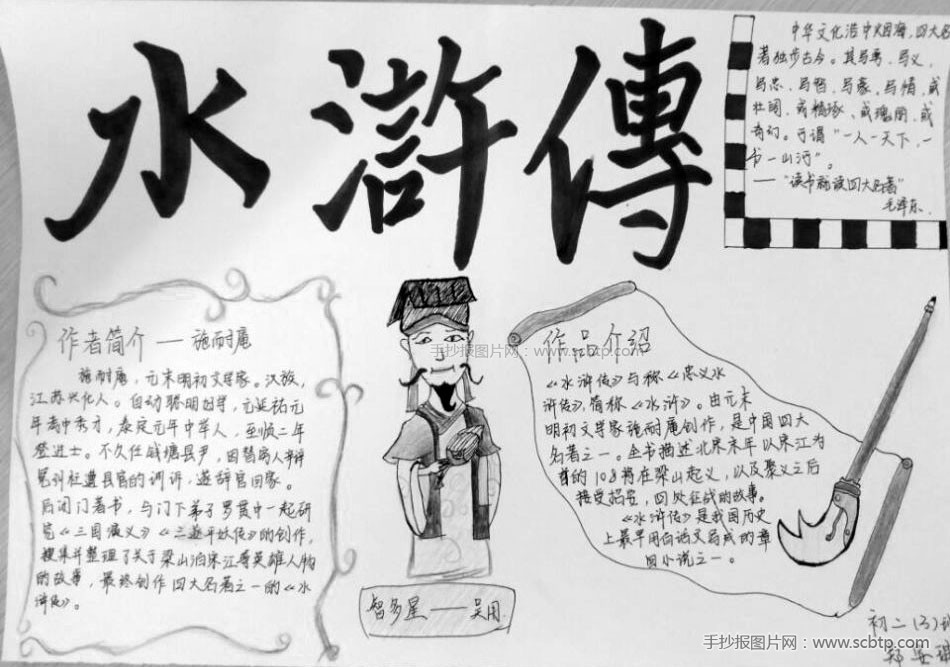 水滸傳
中华文化浩如烟海，四大名
著独步古今。其与寿、与义、
与忠、与智、与豪、与情，或
壮阔，或精琢，或瑰丽，或
奇幻。可谓“一人一天下，一
书一山河”。
——“读书就读四大名著”
毛泽东.
作者简介——施耐庵
施耐庵，元末明初文学家。汉族，
江苏兴化人。自幼聪明好学，元延祐元
年考中秀才，泰定元年中举人，至顺二年
登进士。不久任钱塘县尹，因替穷人辩
冤纠枉遭县官的训斥，遂辞官回家。
后闭门著书，与门下弟子罗贯中一起研
究《三国演义》《三遂平妖传》的创作，
搜集并整理了关于梁山泊宋江等英雄人物
的故事，最终创作四大名著之一的《水
浒传》。
手抄报图片网：www.scbtp.com
智多星——吴用.
作品介绍
《水浒传》与称《忠义水
浒传》，简称《水浒》。由元末
明初文学家施耐庵创作，是中国四大
名著之一。全书描述北宋末年以宋江为
首的108将在梁山起义，以及聚义之后
接受招安，四处征战的故事。
《水浒传》是我国历史
上最早用白话文写成的章
回小说之一。
初二(3)
手抄报图片网：www.scbtp.com